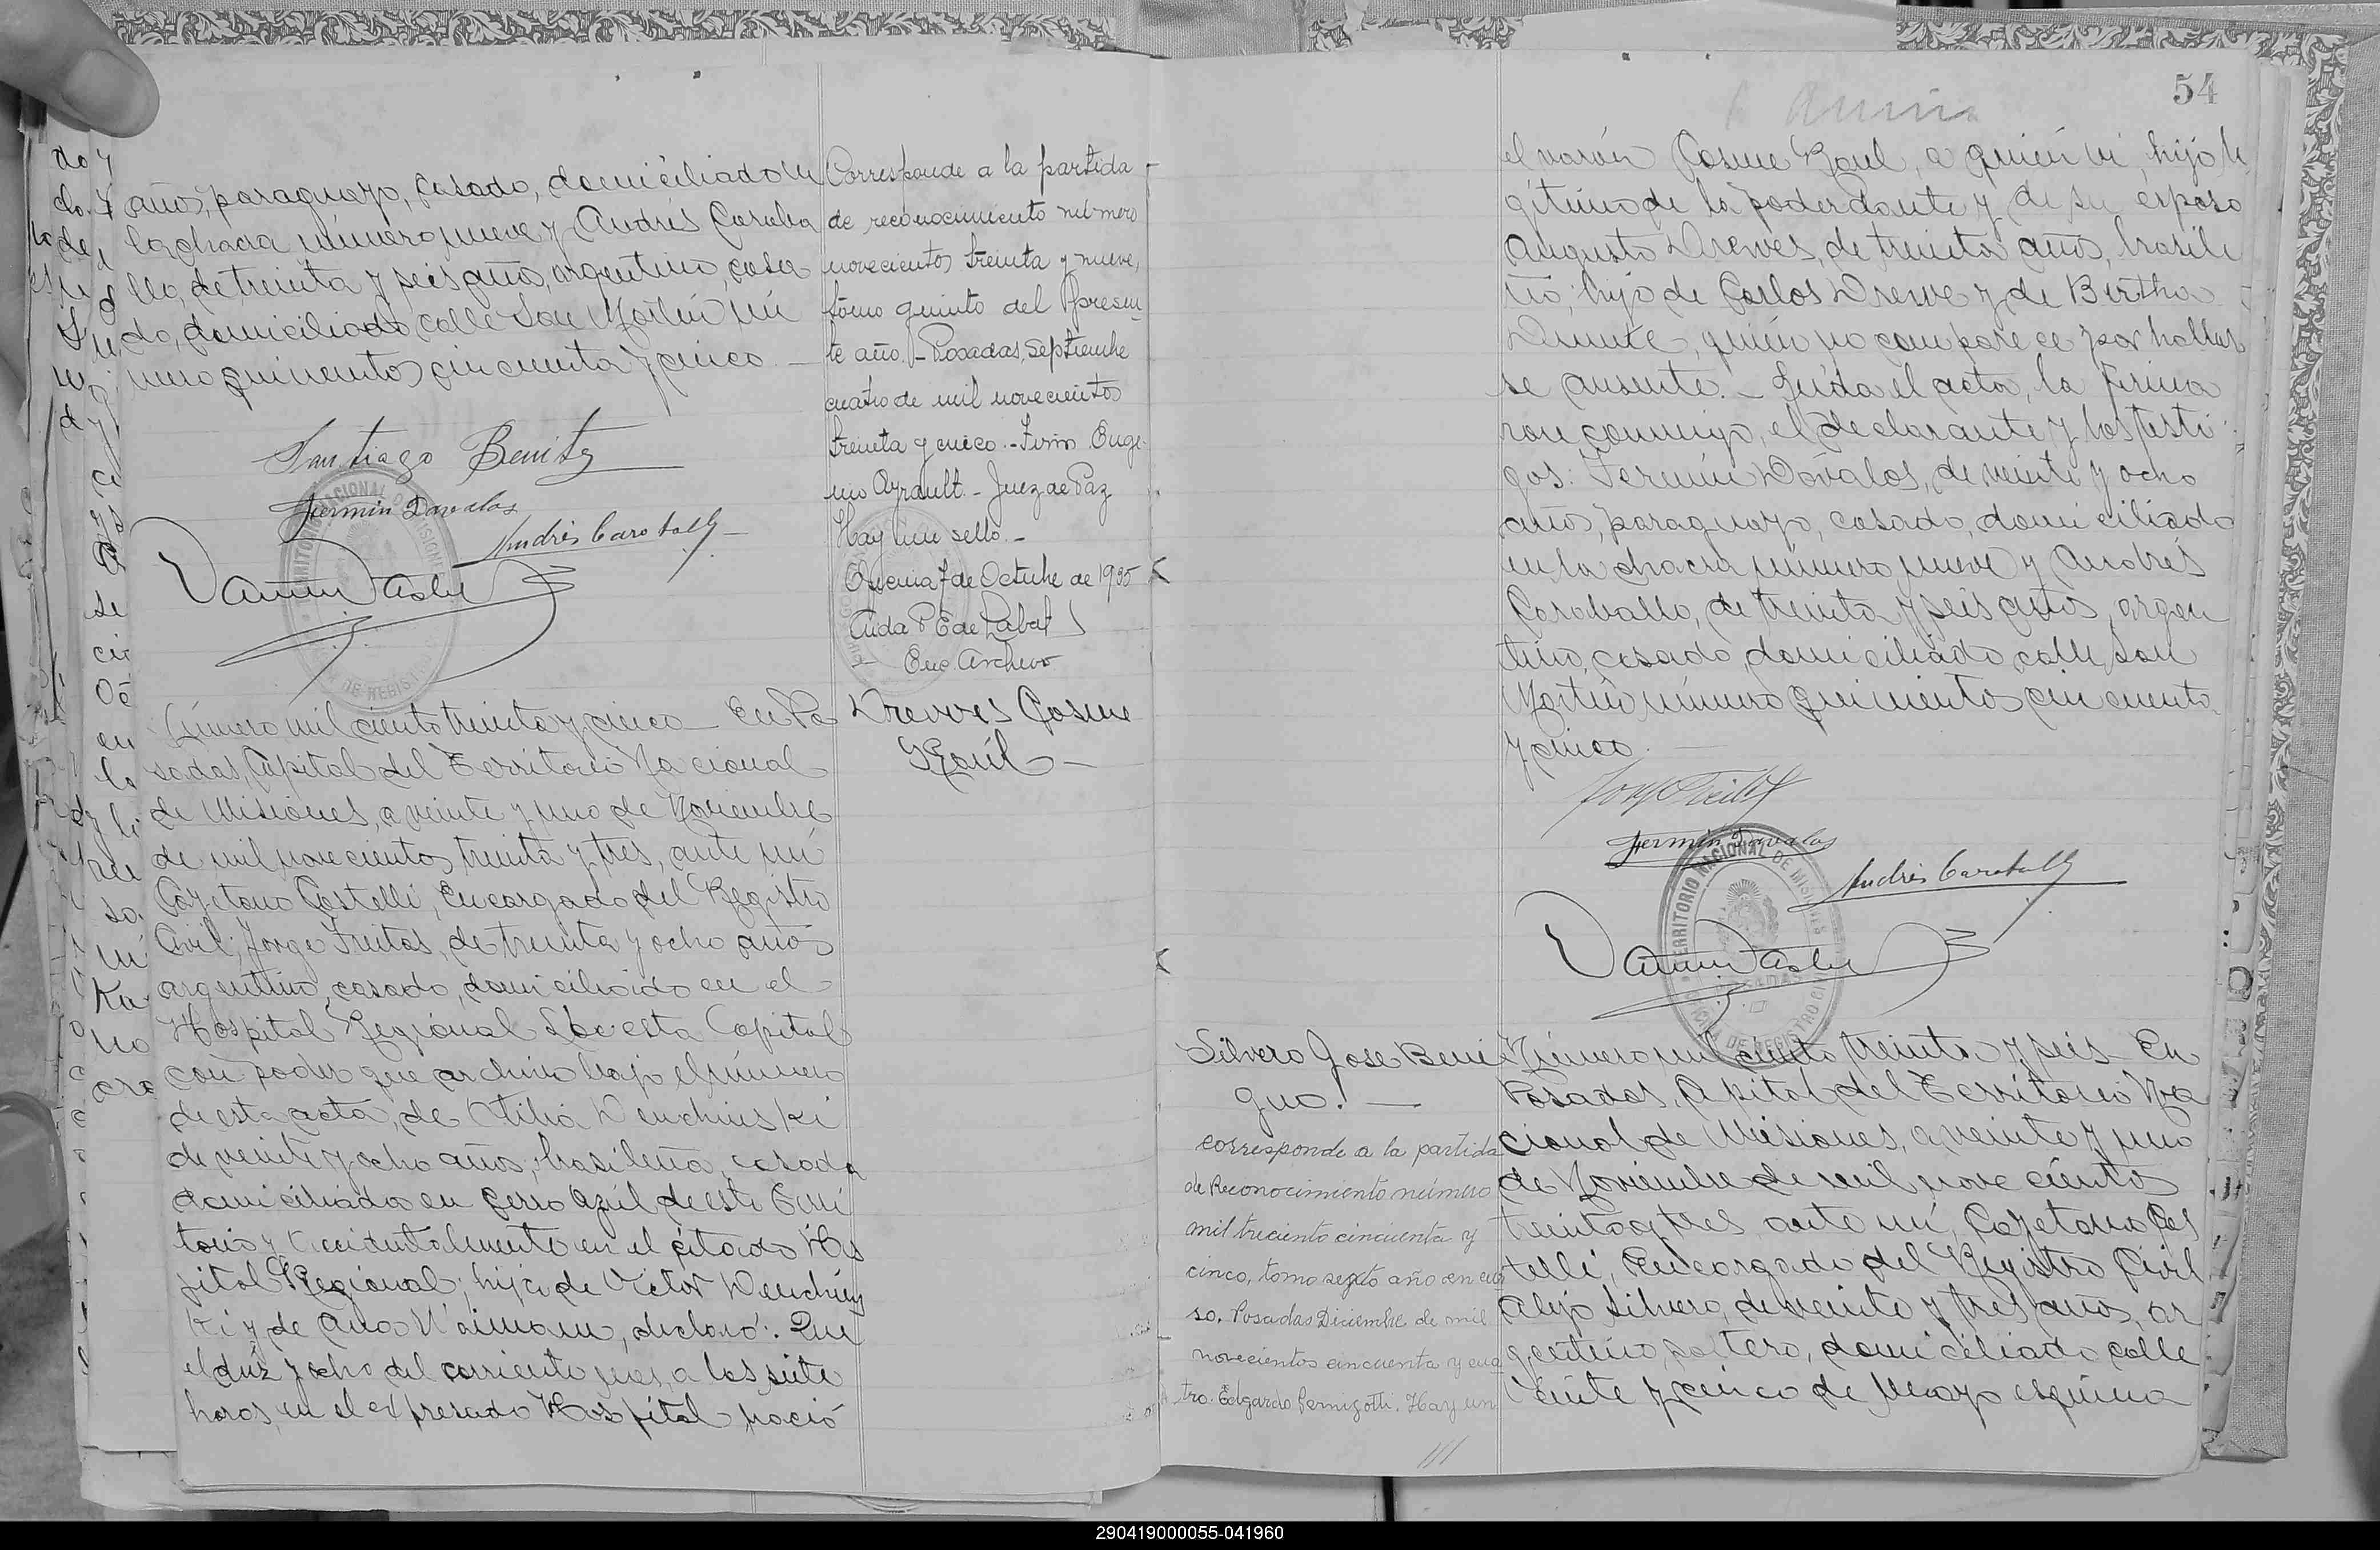 años, paraguayo, casado, domiciliado en
la chacra número nueve y Andrés Caraba
llo, de treinta y seis años, argentino, casa
do, domiciliado calle San Martín nú
mero quinientos cincuenta y cinco. —
Santiago Benitez
Fermin Davalos
Andrés Caraballo
Corresponde a la partida
de reconocimiento número
novecientos treinta y nueve,
tomo quinto del presen
te año. - Posadas, Septiembre
cuatro de mil novecientos
treinta y cinco. - Firm Euge
nio Ayrault. - Juez de Paz
Hay un sello. -
7 de Octubre de 1935
Aida P E de Labat
Enc. Archivo
Número mil ciento treinta y cinco — En Po
sadas, Capital del Territorio Nacional
de Misiones, a veinte y uno de Noviembre
de mil novecientos treinta y tres, ante mí
Cayetano Castelli, Encargado del Registro
Civil, Jorge Freitas, de treinta y ocho años
argentino, casado, domiciliado en el
Hospital Regional de esta Capital
con poder que archivo bajo el número
de esta acta, de Otilia Wenchinski
de veinte y ocho años, brasileña, casada
domiciliada en Cerro Azúl de este Terri
torio y accidentalmente en el citado Hos
pital Regional; hija de Victor Wenchins
ki y de Ana declaró: Que
el diez y ocho del corriente mes, a las siete
horas, en el expresado Hospital, nació
Drewes Cosme
Raúl —
54
el varón Cosme Raul, a quién vi, hijo le
gítimo de la poderdante y de su esposo
Augusto Drewes, de treinta años, brasile
ño, hijo de Carlos Drewe y de Bertha
quién no comparece por hallar
se ausente. - Leída el acta, la firma
ron conmigo, el declarante y los testi
gos: Fermín Dávalos, de veinte y ocho
años, paraguayo, casado, domiciliado
en la chacra número nueve y Andrés
Caraballo, de treinta y seis años, argen
tino, casado, domiciliado calle San
Martín número quinientos cincuenta
y cinco. —
Fermin Davalos
Andrés Caraballo
TERRITORIO NACIONAL DE MISIONES
Silvero José Beni
gno. —
corresponde a la partida
de Reconocimiento número
mil treciento cincuenta y
cinco, tomo sexto año en cur
so. Posadas Diciembre de mil
novecientos cincuenta y cua
tro. Edgardo Pernigotti. Hay un
Número mil ciento treinta y seis — En
Posadas, Capital del Territorio Na
cional de Misiones, a veinte y uno
de Noviembre de mil novecientos
treinta y tres, ante mí, Cayetano Cas
telli, Encargado del Registro Civil
Alejo Silvero, de veinte y tres años, ar
gentino, soltero, domiciliado calle
Veinte y cinco de Mayo esquina
290419000055-041960